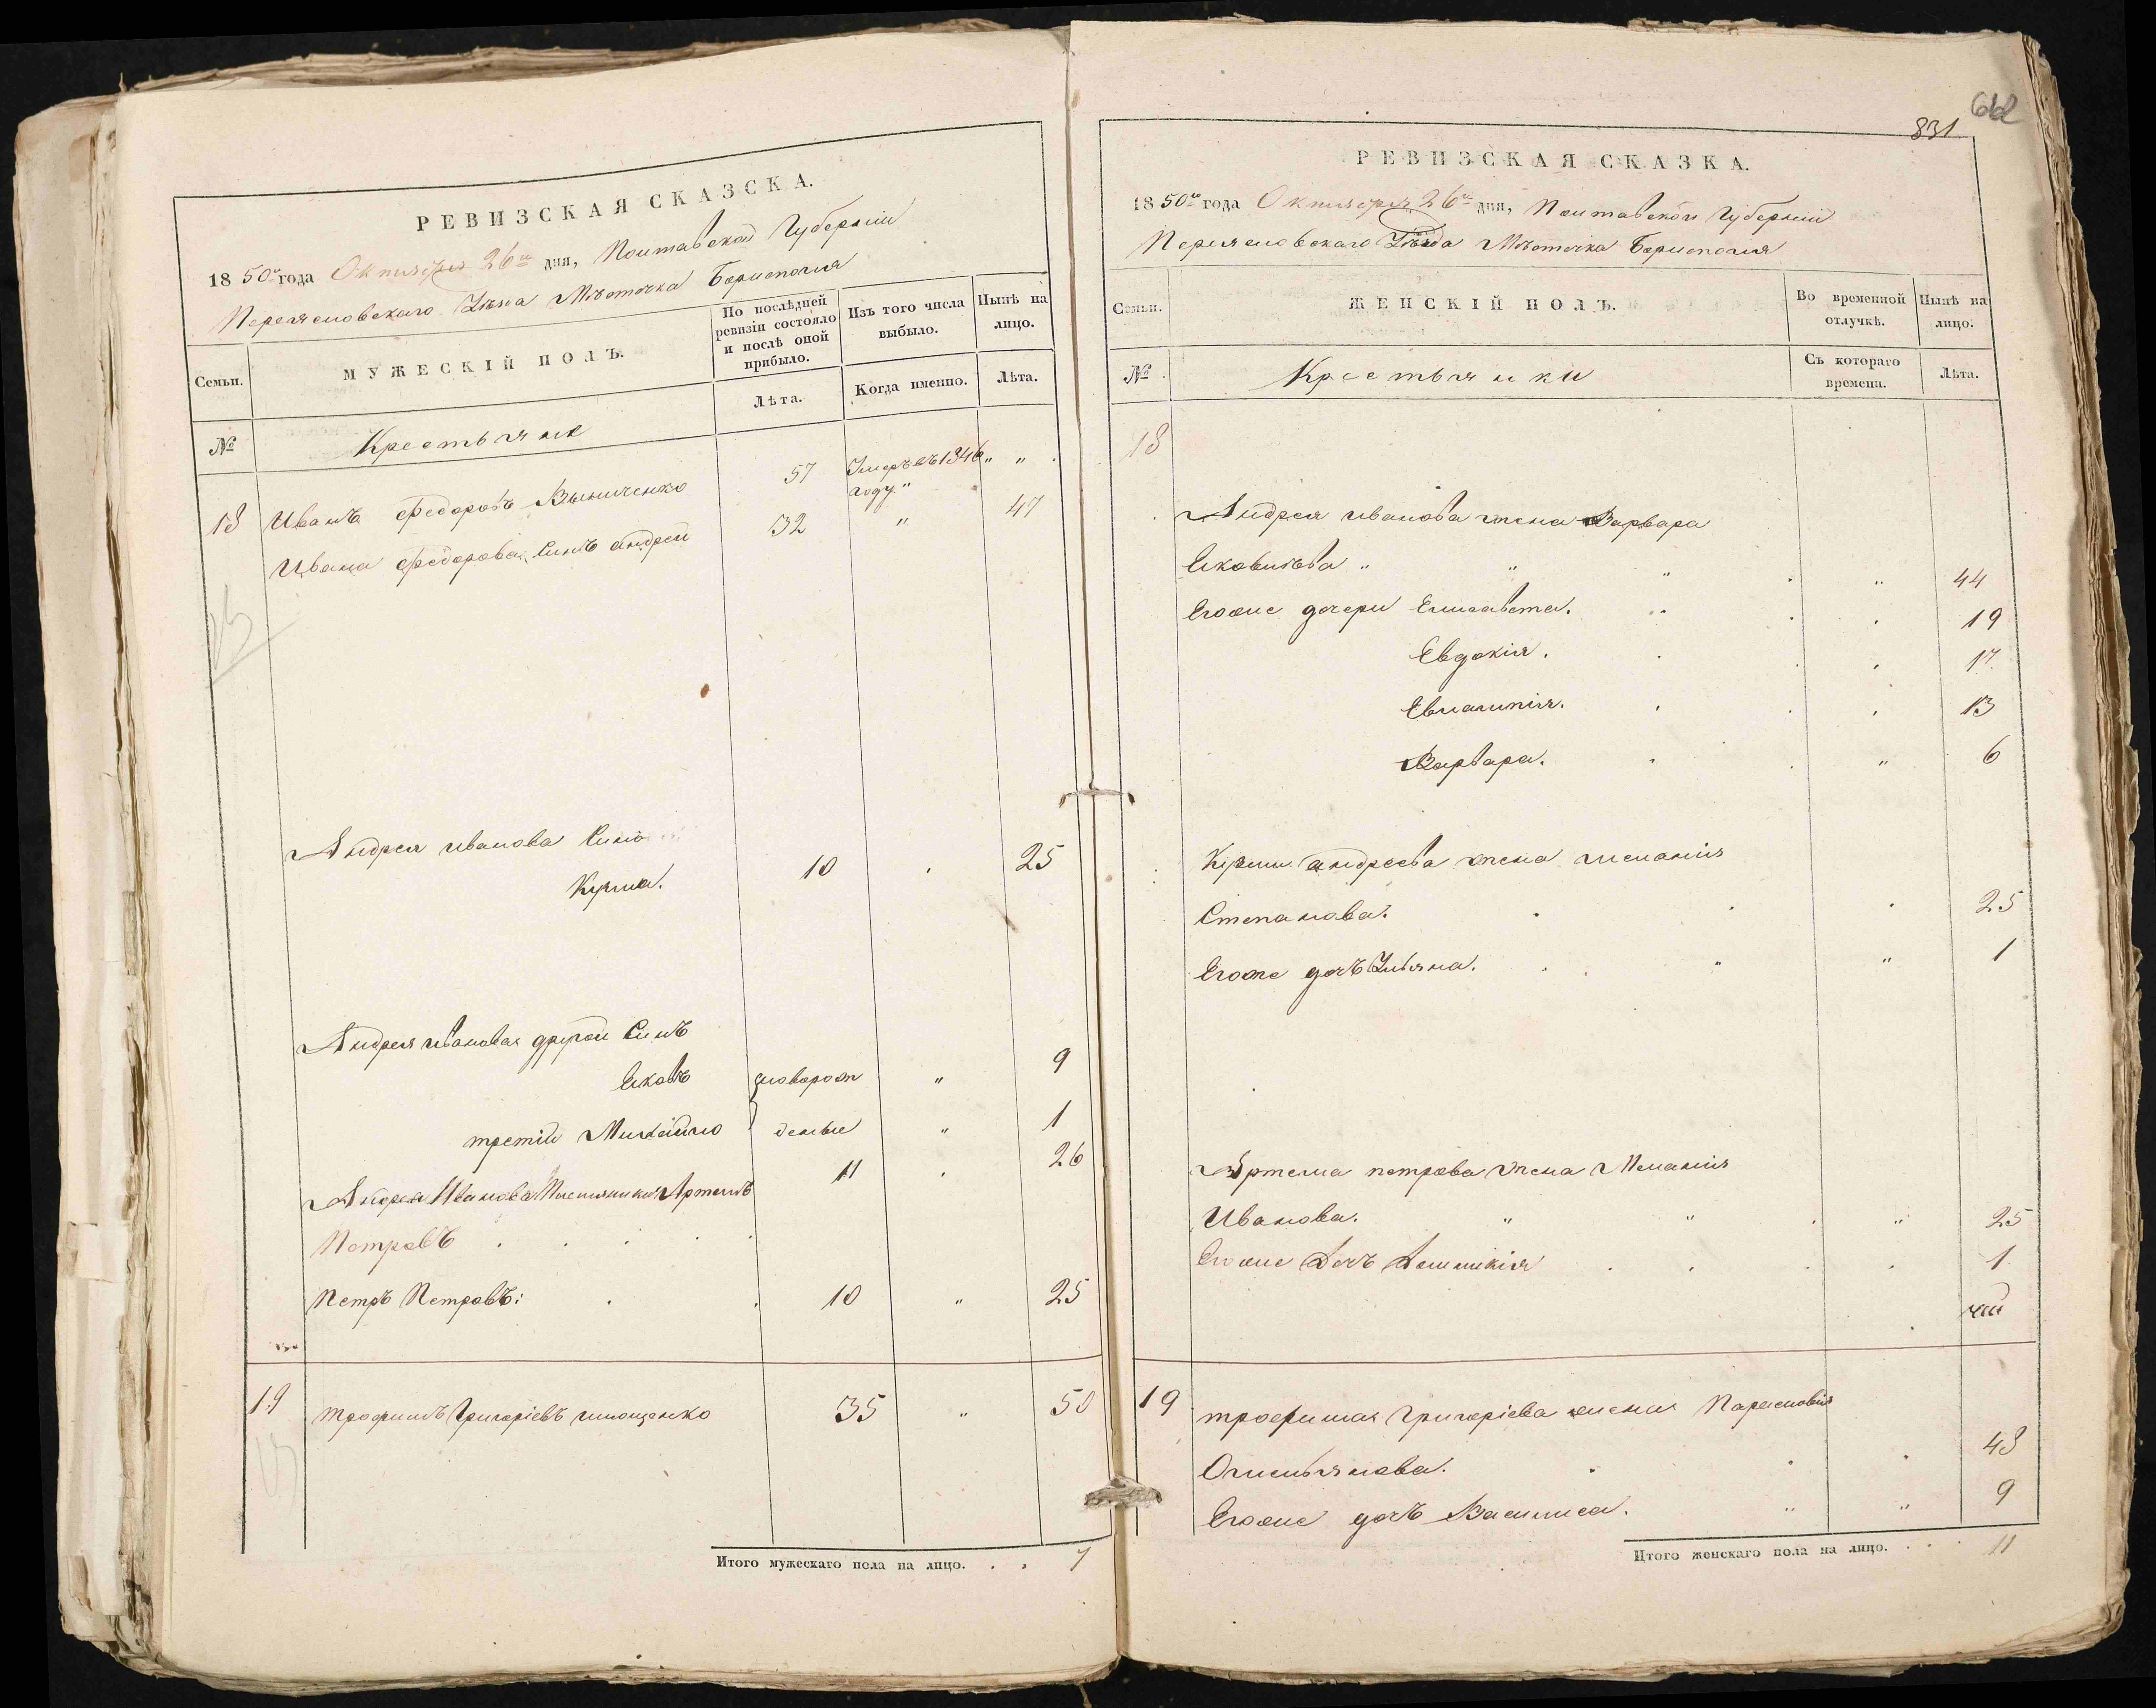 РЕВИЗСКАЯ СКАЗСКА.
1850го года Октября 26го дня, Полтавской Губерніи
Переяславскаго Уѣзда Мѣстечка Борисполя
Семьи.
МУЖЕСКІЙ ПОЛЪ.
По послѣдней ревизіи состояло и послѣ оной прибыло.
Изъ того числа выбыло.
Нынѣ на лицо.
Лѣта.
Когда именно.
Лѣта.
№
Крестьяне
18 Иванъ Федоровъ Винниченко 57 Умеръ въ 1846 " "
году "
Ивана Федорова Синъ андрей 32 " 47
Андрея иванова Синъ
Кузма. 10 . 25
Андрея иванова другой Синъ
Яковъ новорож " 9
третій Михайло денные " 1
Андрея Иванова Племяники Артемъ 11 . 26
Петровъ
Петръ Петровъ: 10 " 25
19 трофимъ Григоріевъ 35 " 50
Итого мужескаго пола на лицо. . . 7
662
831
РЕВИЗСКАЯ СКАЗКА.
1850го года Октября 26го дня, Полтавской Губерніи
Переяславскаго Уѣзда Мѣстечка Борисполя
Семьи.
ЖЕНСКІЙ ПОЛЪ.
Во временной отлучкѣ.
Нынѣ на лицо.
№
Крестьянки
Съ котораго времени.
Лѣта.
18
Андрея иванова жена Варвара
Яковлева " " " . " 44
Егоже дочери Елисавета. 19
Евдокія. 17
Евлампія. 13
Варвара. " 6
Кузми андреева жена меланія
Степанова. 25
Егоже дочъ Ульяна. " " 1
Артема петрова жена Меланія
Иванова. " " . " 25
Егоже Дочъ 1
19 трофима григоріева жена Парасковія
Омельянова. 48
Егоже дочъ Василиса. " " 9
Итого женскаго пола на лицо. . . . 11